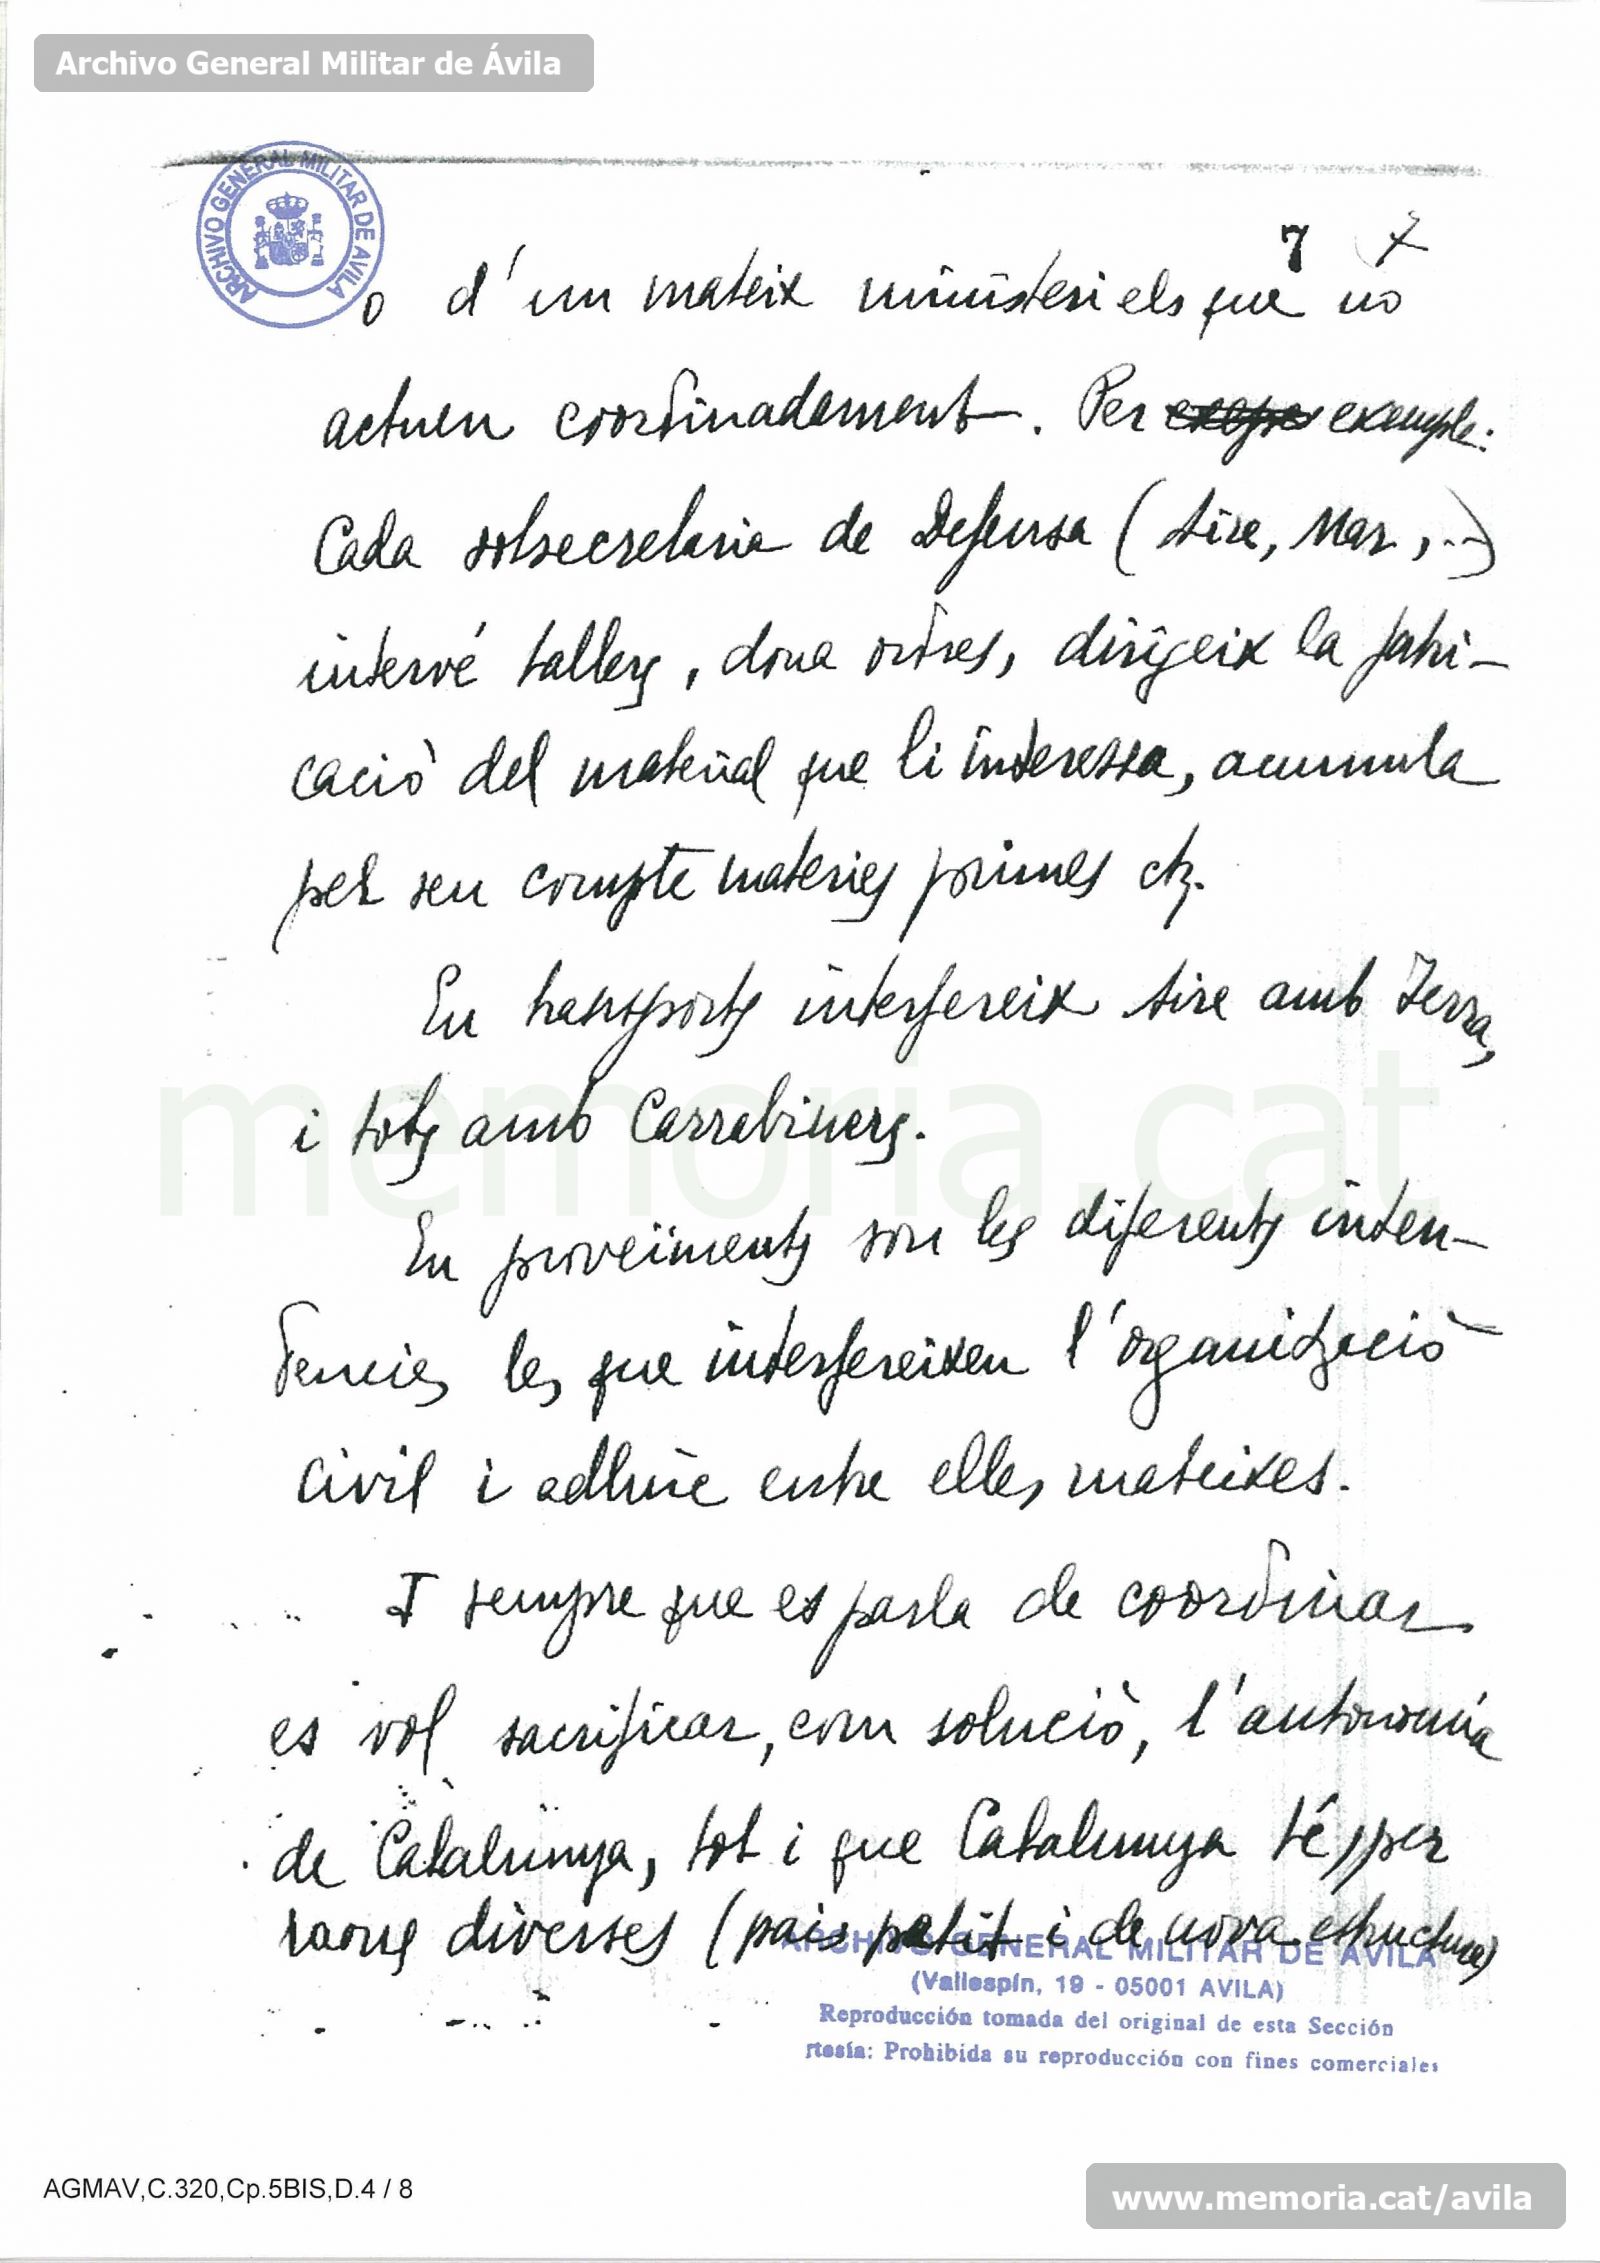 Archivo General Militar de Ávila
ARCHIVO GENERAL MILITAR DE AVILA
7 7
o d'un mateix ministeri els que no
actuen coordinadament. Per exemple:
Cada sotsecretaria de Defensa (Aire, Mar, ...)
intervé tallers, dona ordres, dirigeix la fabri-
cació del material que li interessa, acumula
per seu compte materies primes etz.
En transports interfereix Aire amb Terra,
i tots amb Carrabiners.
En proveïments son les diferents inten-
dencies les que interfereixen l'organització
civil i adhuc entre elles mateixes.
I sempre que es parla de coordinar
es vol sacrificar, com solució, l'autonomía
de Catalunya, tot i que Catalunya té, per
raons diverses (pais petit i de nova estructura)
ARCHIVO GENERAL MILITAR DE AVILA
(Vallespín, 19 - 05001 AVILA)
Reproducción tomada del original de esta Sección
rtesía: Prohibida su reproducción con fines comerciales
memoria.cat
AGMAV,C.320,Cp.5BIS,D.4 / 8
www.memoria.cat/avila